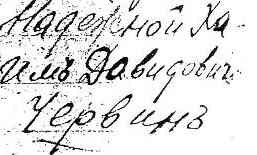 Надежной Ха-
имъ Давидович
Червинъ